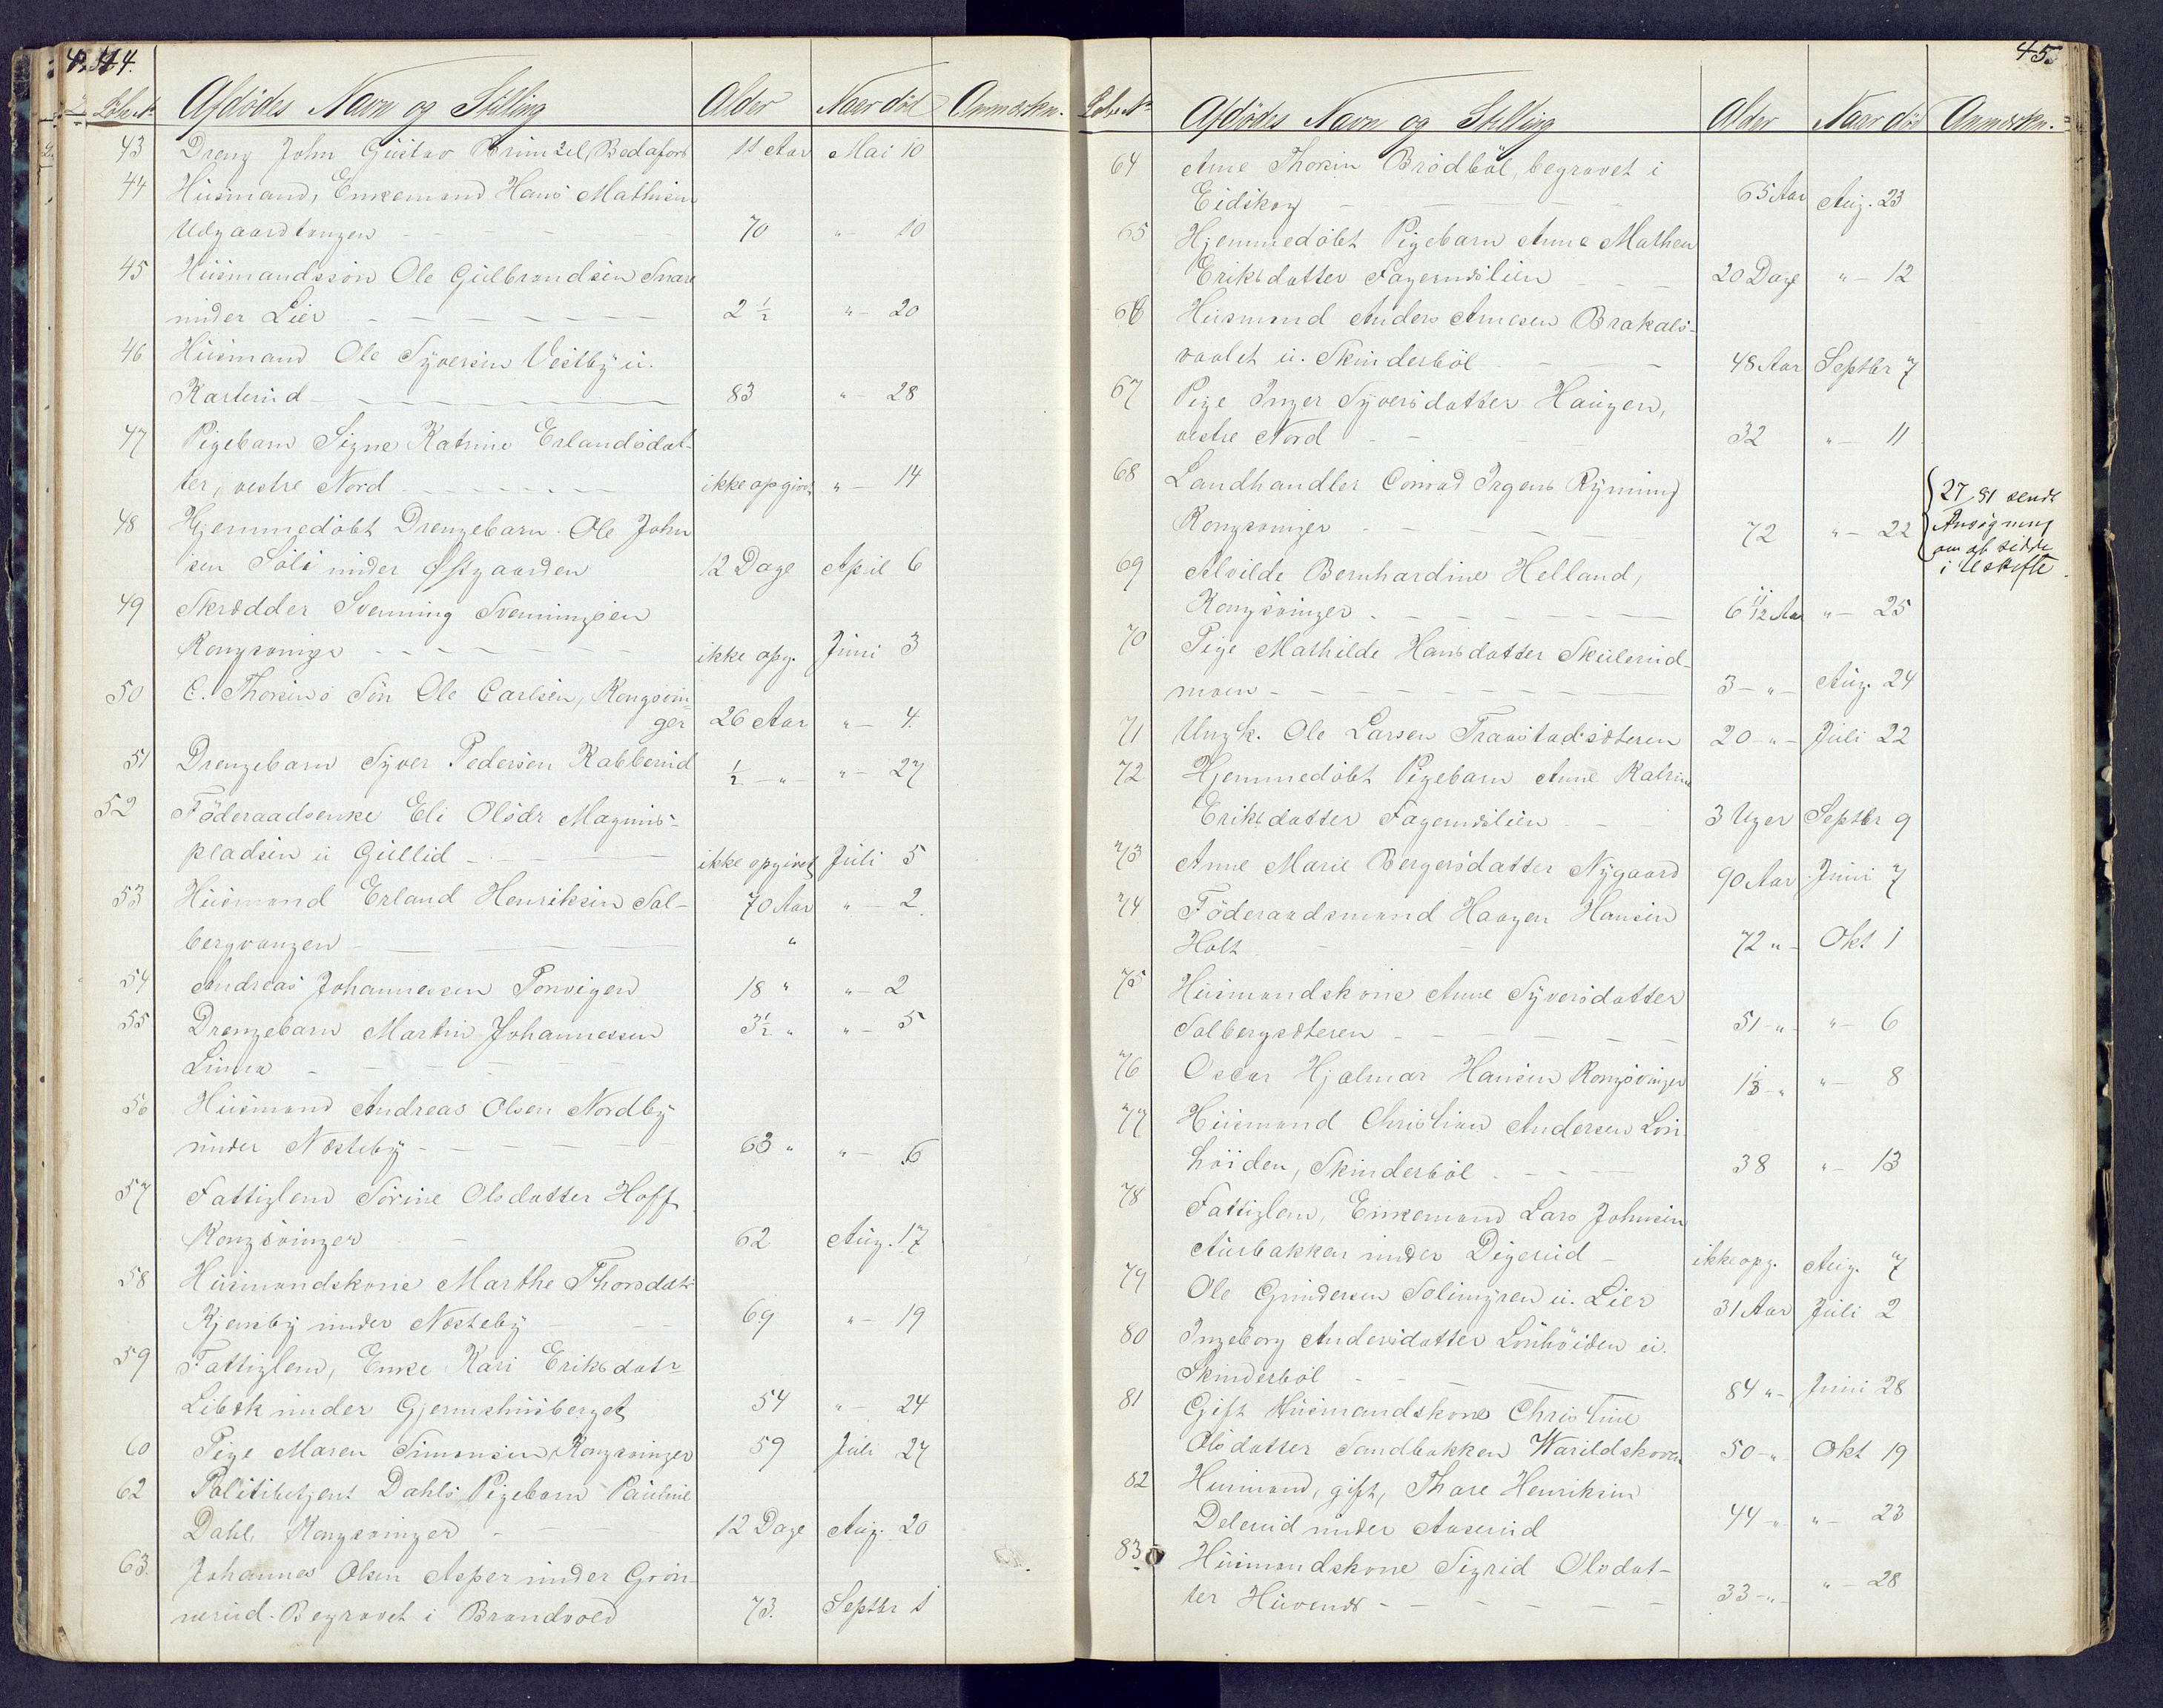 44.
Löbe No Afdödes Navn og Stilling Alder Naar död Anmærkn.
43 Dreng John Gustav Brimzel, Bedafors 11 Aar Mai 10
44 Husmand, Enkemand Hans Mathisen
Udgaardtangen - - - 70 " - 10
45 Husmandssön Ole Gulbrandsen Snare
under Lier - - - 2 1/2 " - 20
46 Husmand Ole Syversen Vestby u.
Rasterud - - - 83 " - 28
47 Pigebarn Signe Katrine Erlandsdat-
ter, vestre Nord - - - ikke opgivet " - 14
48 Hjemmedöbt Drengebarn Ole John
sen Söli under Östgaarden 12 Dage April 6
49 Skrædder Svenning Svenningsen
Kongsvinger - - - ikke opg. Juni 3
50 C. Thorsens Sön Ole Carlsen, Kongsvin-
ger 26 Aar " - 4.
51 Drengebarn Syver Pedersen Rabberud 1/2 - " - " - 27
52 Föderaadsenke Eli Olsdr Magnus-
pladsen u Gullid - - - ikke opgivet Juli 5
53 Husmand Erland Henriksen Sol-
bergvangen - - - 70 Aar " - 2.
54 Andreas Johannesen Porvigen 18 " " - 2
55 Drengebarn Martin Johannessen 3 1/2 " " - 5
Linna - - -
56 Husmand Andreas Olsen Nordby
under Næsteby - - - 63 " " - 6
57 Fattiglem Sörine Olsdatter Hoff
Kongsvinger - - 62 Aug. 17
58 Husmandskone Marthe Thorsdatr
Kjensby under Næsteby - - - 69 " - 19
59 Fattiglem, Enke Kari Eriksdatr
Libæk under Gjemshusberget 54 " - 24
60 Pige Maren Simensen, Kongsvinger 59 Juli 27
62 Politibetjent Dahls Pigebarn Pauline
Dahl, Kongsvinger - - - 12 Dage Aug. 20
63. Johannes Olsen Asper under Grön-
nerud. Begravet i Brandvold 73. Septbr 1
45.
Löbe No Afdödes Navn og Stilling Alder Naar död Anmærkn.
64 Anne Thorsen Brödböl, begravet i
Eidskog - - - 65 Aar Aug. 23
65 Hjemmedöbt Pigebarn Anne Mathea
Eriksdatter Fagernæslien - - - 20 Dage " - 12
66 Husmand Anders Arnesen Brakals-
vaalet u. Skinderböl - - - 48 Aar Septbr 7
67 Pige Inger Syversdatter Haugen,
vestre Nord - - - 32 " - 11
68 Landhandler Conrad Irgens Rynning
Kongsvinger - - - 72 " - 22
27/9 81 sendt
Ansögning
om at sidde
i Uskifte
69 Alvilde Bernhardine Helland,
Kongsvinger - - - 6 11/12 Aar " - 25
70 Pige Mathilde Hansdatter Skulerud-
moen - - - 3 - " - Aug. 24
71 Ungk. Ole Larsen Traastadsæteren 20 - " - Juli 22
72 Hjemmedöbt Pigebarn Anne Katrine
Eriksdatter Fagernæslien - - 3 Uger Septbr 9
73 Anne Marie Bergersdatter Nygaard 90 Aar Juni 7
74 Föderaadsmand Haagen Hansen
Holt - - 72 " - Okt 1
75 Husmandskone Anne Syversdatter
Solbergsæteren - - - 51 - " - " - 6
76 Oscar Hjalmar Hansen Kongsvinger 1 1/3 - " " - 8
77 Husmand Christian Andersen Lön
höiden, Skinderböl - - - 38 " - 13
78 Fattiglem, Enkemand Lars Johnsen
Aurbakken under Digerud - ikke opg. Aug. 7
79 Ole Gundersen Solimyren u. Lier 31 Aar Juli 2
80 Ingeborg Andersdatter Lönhöiden u.
Skinderböl - - - 84 " - Juni 28
81 Gift Husmandskone Christine
Olsdatter Sandbakken Varildskoven 50 - " - Okt 19
82 Husmand, gift, Thore Henriksen
Delerud under Aaserud 44 - " " - 23
83 Husmandskone Sigrid Olsdat-
ter Huvends - - - 33 - " - " - 28